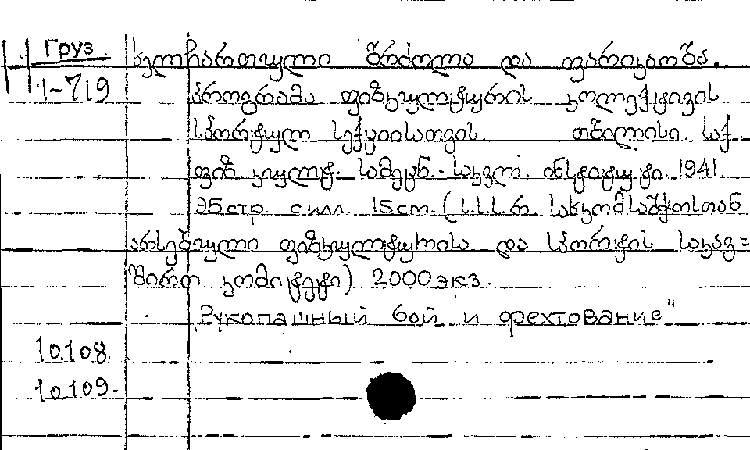 Груз
1-719
ხელჩართული ბრძოლა და ფარიკაობა.
პროგრამა ფიზკულტურის კოლექტივის
სპორტულ სექციისათვის თბილისი. საქ.
ფიზ კულტ. სამეცნ.-საკვლ. ინსტიტუტი. 1941
35 стр с илл. 15 cm. (ს.ს.ს.რ. სახკომსაბჭოსთან
არსებული ფიზკულტურისა და სპორტის საკავ=
შირო კომიტეტი) 2000 экз.
"Рукопашный бой и фехтование"
10108.
10109.